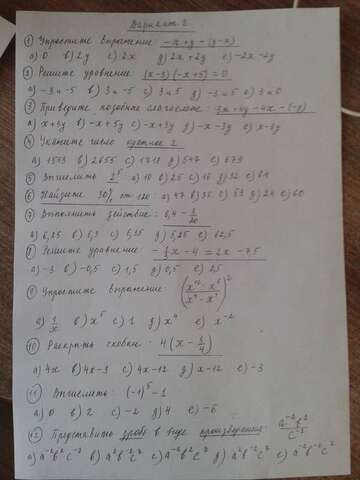 Вариант 2
① Упростите выражение: -x+y-(y-x)
а) 0 в) 2y с) 2x д) 2x+2y е) -2x-2y
② Решите уравнение: (x-3)(-x+5)=0
а) -3 и -5 в) 3 и -5 с) 3 и 5 д) -3 и 5 е) 3 и 0
③ Приведите подобные слагаемые: 3x+4y-4x-(-y)
а) x+3y в) -x+5y с) -x+3y д) -x-3y е) x-3y
④ Укажите число кратное 2
а) 1543 в) 2655 с) д) 547 е) 679
⑤ Вычислить 2⁵ а) 10 в) 25 с) 16 д) 32 е) 64
⑥ Найдите 30% от 120: а) 47 в) 36 с) 59 д) 24 е) 60
⑦ Выполнить действие: 6,4 - 3/20
а) 6,25 в) 6,3 с) 6,15 д) 5,25 е) 12,5
Решите уравнение: x-4=2x-7,5
а) -3 в) -0,5 с) 1,5 д) 0,5 е) 2,5
⑨ Упростите выражение:
а) 1/x в) x⁵ с) 1 д) x⁴ е) x⁻²
⑩ Раскрыть скобки: 4(x-3/4)
а) 4x в) 4x-3 с) 4x-12 д) x-12 е) -3
⑪ Вычислить: (-1)⁵-1
а) 0 в) 2 с) -2 д) 4 е) -6
⑫ Представить дробь в виде произведения: